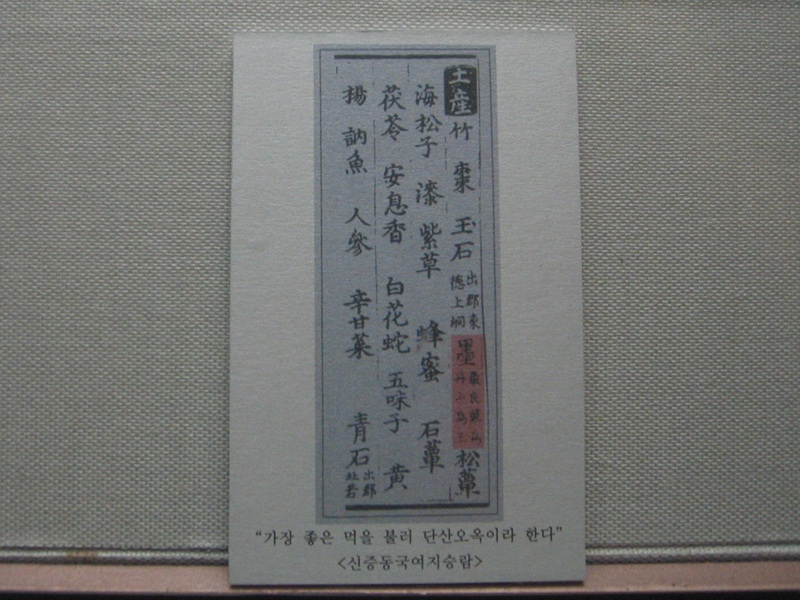 土産 竹 棗 玉石 出郡東 德上洞 墨 最良號 丹山烏玉 松蕈
海松子 漆 紫草 蜂蜜 石蕈
茯苓 安息香 白花蛇 五味子 黃
楊 訥魚 人參 辛甘菜 青石 出郡
“가장 좋은 먹을 불러 단산오옥이라 한다”
<신증동국여지승람>